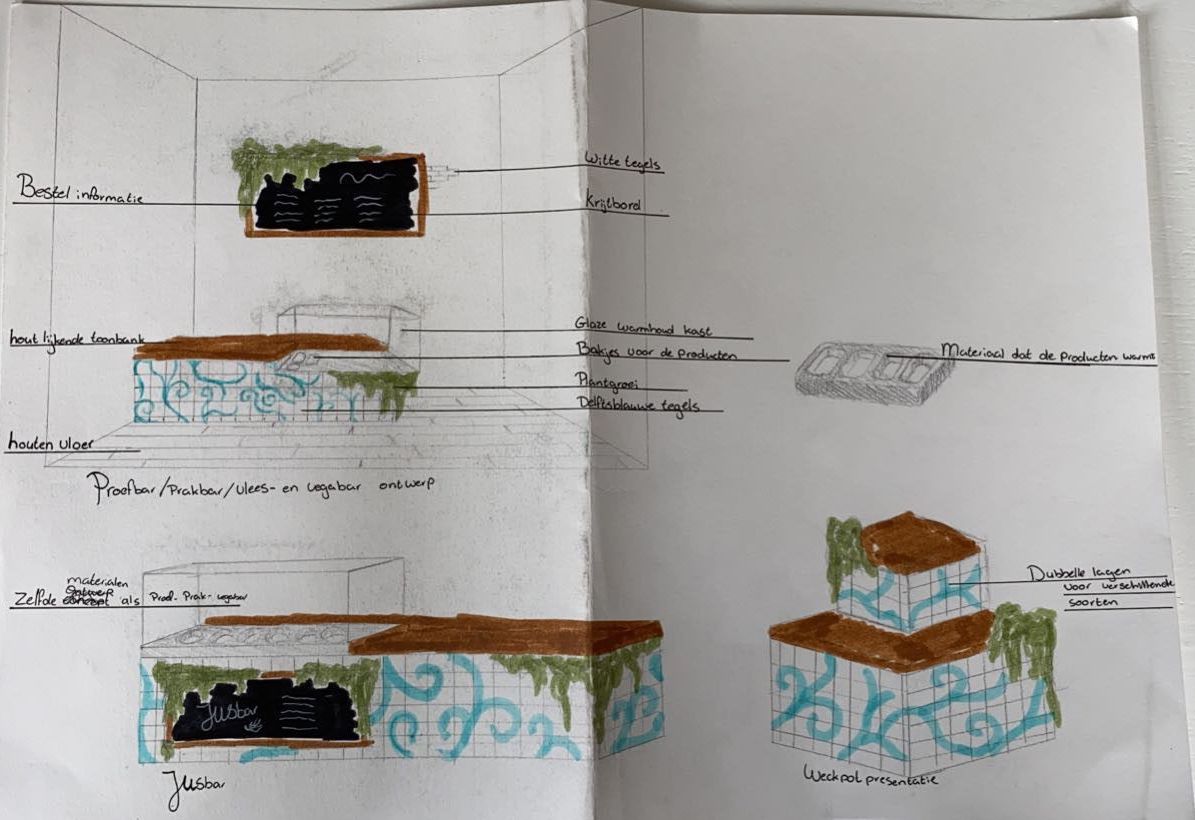 Witte tegels
Bestel informatie
Krijtbord
Glaze warmhoud kast
hout lijkende toonbank
Bakjes voor de Producten
Materiaal dat de producten warmt
Plantgroei
Delftsblauwe tegels
houten vloer
Proefbar/Prakbar/vlees- en vegabar ontwerp
materialen
Zelfde concept als Proef- Prak- vegabar
Dubbelle lagen
voor verschillende
soorten
Jusbar
Jusbar
Weckpot presentatie